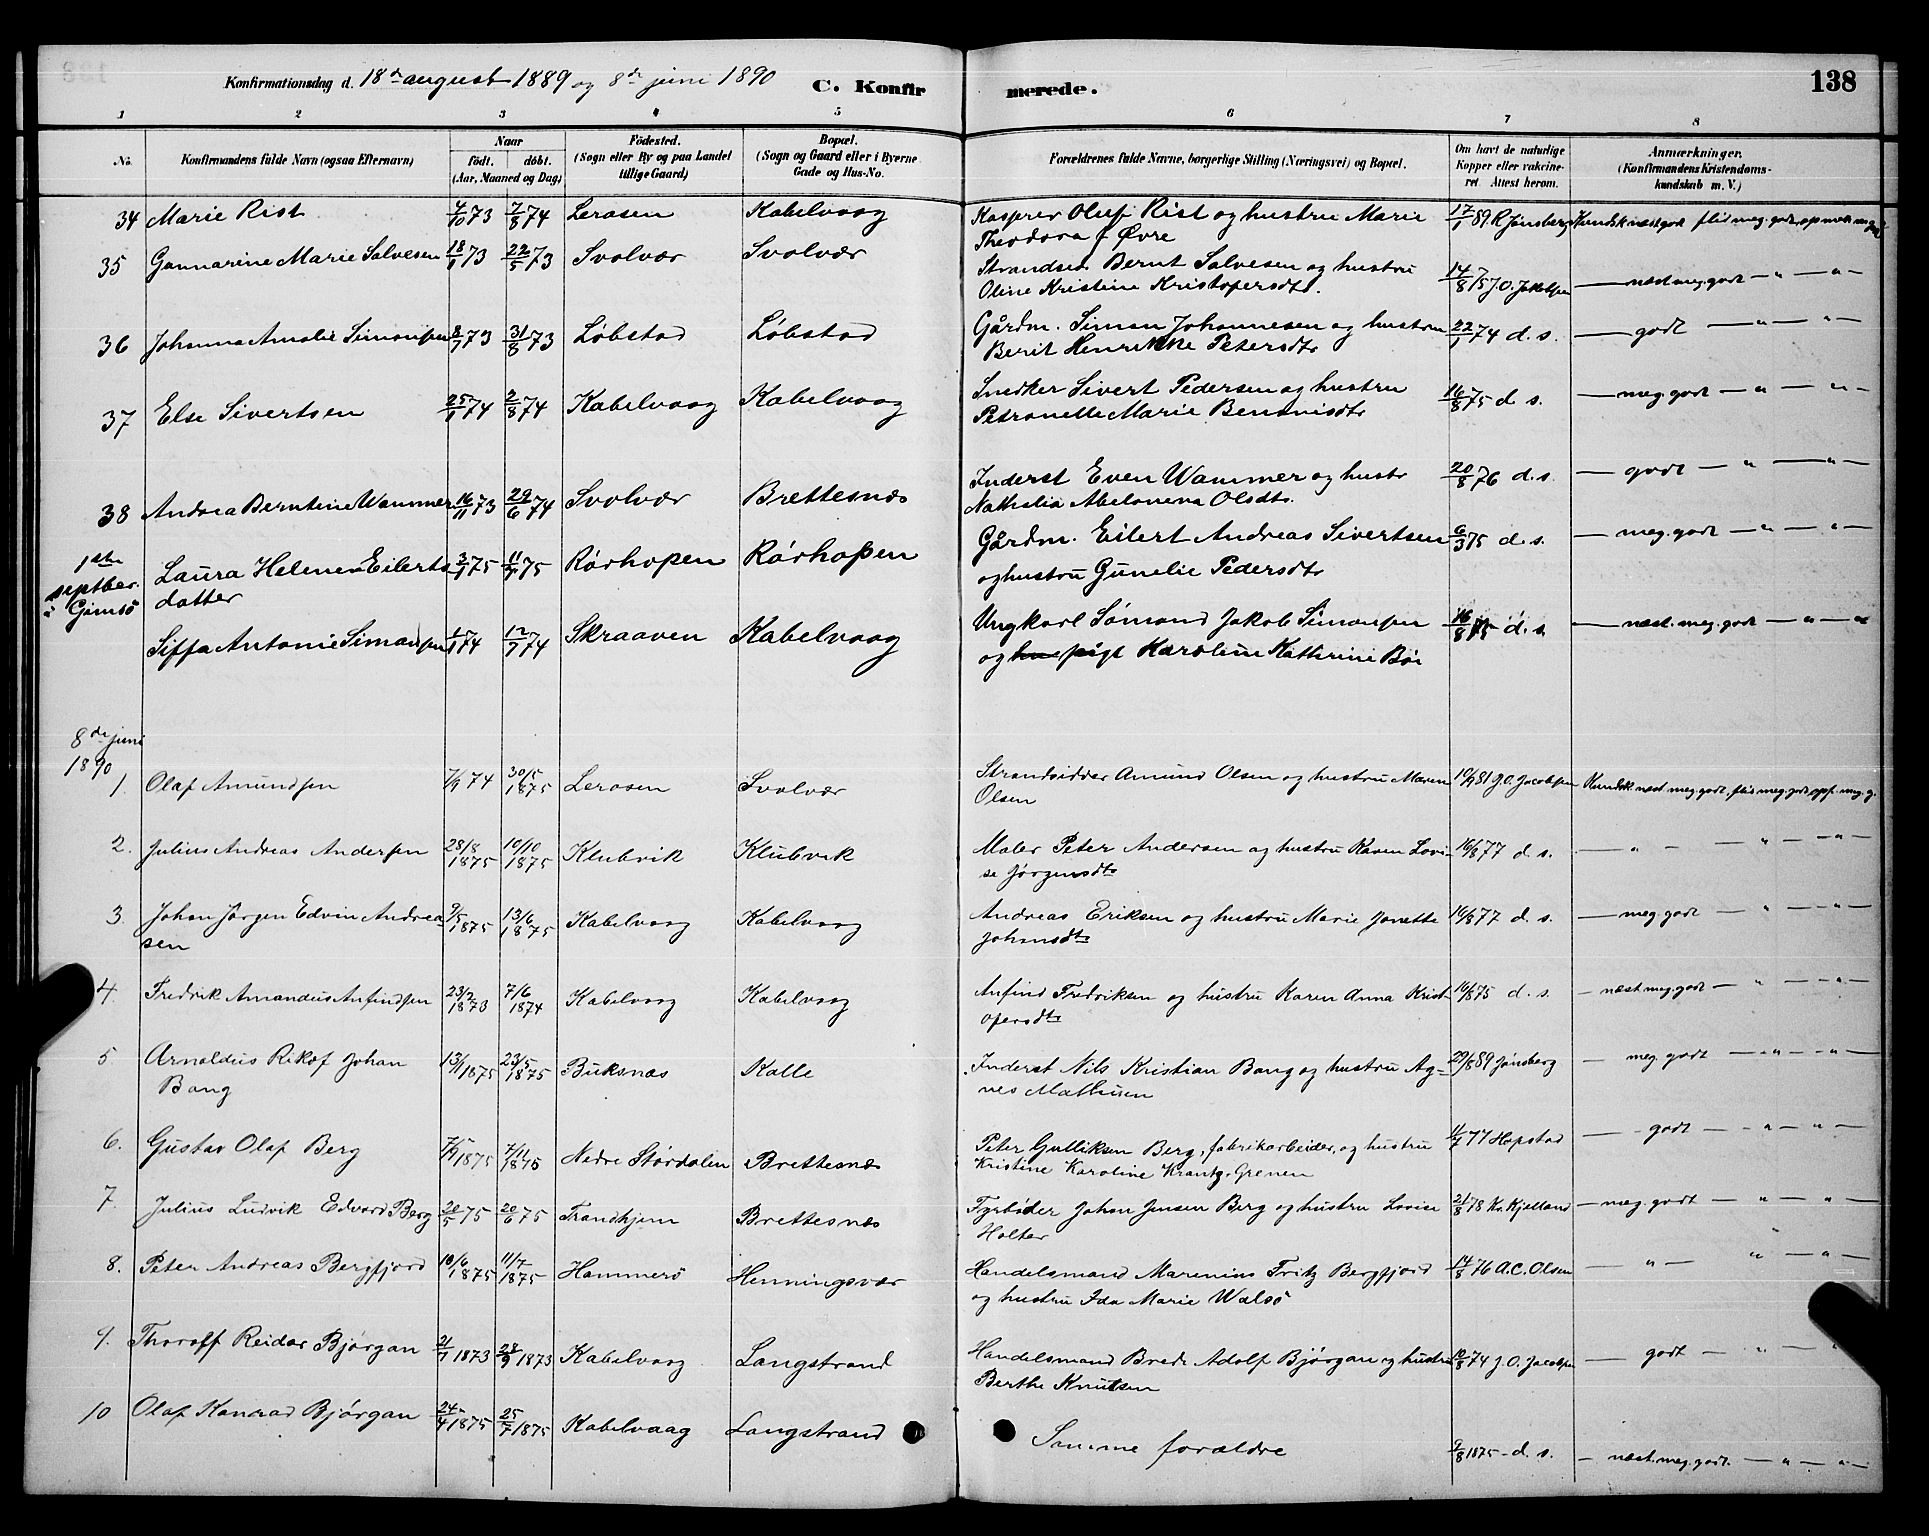 Konfirmationsdag d. 18de august 1889 og 8de juni 1890 C. Konfirmerede. 138
1 2 3 4 5 6 7 8
No. Konfirmandens fulde Navn (ogsaa Efternavn) Naar født. døbt. (Aar, Maaned og Dag) Fødested. (Sogn eller By og paa Landet tillige Gaard) Bopæl. (Sogn og Gaard eller i Byerne Gade og Hus-No. Forældrenes fulde Navne, borgerlige Stilling (Næringsvei) og Bopæl. Om havt de naturlige Kopper eller vakcineret. Attest herom. Anmærkninger. (Konfirmandens Kristendomskundskab m. V.)
34 Marie Rist 4/10 73 7/8 74 Lerosen Kabelvaag Kasprer Oluf Rist og hustru Marie 17/1 89. R Jønsberg Kundsk næst godt flid meg. godt
Theodora f Øvre
35 Gunnarine Marie Salvesen 18/1 73 22/5 73 Svolvær Svolvær Strandsid. Bernt Salvesen og hustru 14/8 75 J.O. Jakobsen — næst meg. godt — " — " —
Oline Kristine Kristofersdt.
36 Johanna Amalie Simonsen 8/7 73 31/8 73 Løbstad Løbstad Gårdm. Simon Johannesen og hustru 22/1 74 d. s. — godt — " — " —
Berit Henrikke Petersdtr
37 Else Sivertsen 25/1 74 2/8 74 Kabelvaag Kabelvaag Snedker Sivert Pedersen og hustru 16/8 75 d. s. — meg. godt — " — " —
Petronelle Marie Bendniсdtr
38 Andrea Berntine Wammer 16/11 73 29/6 74 Svolvær Brettesnæs Inderst Even Wammer og hustr 20/8 76 d. s. — godt — " — " —
Nathalia Abelonena Olsdtr.
1ste septber. i Gimsø
Laura Helene Eilerts 3/1 75 11/7 75 Rørhopen Rørhopen Gårdm. Eilert Andreas Sivertsen 6/3 75 d. s. — meg. godt — " — " —
datter og hustru Gunelie Pedersdtr
Siffa Antonie Simonsen 1/1 74 12/7 74 Skraaven Kabelvaag Ungkarl Sømand Jakob Simonsen 16/8 75 d. s. — næst. meg. godt — " — "
og pige Karoline Kathrine Bøe
8de juni
1890
1. Olaf Amundsen 7/9 74 30/5 1875 Lerosen Svolvær Strandsidder Amund Olsen og hustru Maren 10/9 81 J.O. Jacobsen Kundsk næst meg. godt, flid meg. godt, opf. meg. g.
Olsen
2. Julius Andreas Andersen 28/8 1875 10/10 1875 Klubvik Klubvik Maler Peter Andersen og hustru Karen Lovi- 16/8 77 d. s. — " — — " — " —
se Jørgensdtr
3. Johan Jørgen Edvin Andrea- 9/5 1875 13/6 1875 Kabelvaag Kabelvaag Andreas Eriksen og hustru Marie Janette 16/8 77 d. s. — meg. godt — " — " —
sen Johansdtr
4. Fredrik Amandus Anfindsen 23/2 1873 7/6 1874 Kabelvaag Kabelvaag Anfind Fredriksen og hustru Karen Anna Krist- 16/8 75 d. s. — næst meg. godt — " — " —
ofersdtr
5 Arnoldus Rikof Johan 13/1 1875 23/5 1875 Buksnæs Kalle Inderst Nils Kristian Bang og hustru Ag- 29/8 89 Jønsberg — meg. godt — " — " —
Bang nes Mathisen
6. Gustav Olaf Berg 7/9 1875 7/11 1875 Nedre Størdalen Brettesnæs Peter Gulliksen Berg, fabrikarbeider, og hustru 11/7 77 Hopstad — godt — " — " —
Kristine Karoline Krantz. Grenen
7. Julius Ludvik Edvard Berg 20/5 75 20/6 75 Trondhjem Brettesnæs Fyrbøder Johan Jensen Berg og hustru Lovise 21/8 78 Kr. Kjelland — meg. godt — " — " —
Holter
8. Peter Andreas Bergfjord 10/6 1875 11/7 1875 Hammerø Henningsvær Handelsmand Marenius Fritz Bergfjord 14/8 76 A.C. Olsen — " — " — " —
og hustru Ida Marie Walsø
9. Thoralf Reidar Bjørgan 21/7 1873 28/9 1873 Kabelvaag Langstrand Handelsmand Brede Adolf Bjørgan og hustru 12/8 74 J.O. Jacobsen — godt — " — "
Berthe Knutsen
10 Olaf Konrad Bjørgan 24/4 1875 25/7 1875 Kabelvaag Langstrand Samme forældre 9/8 1875 - d. s. — næst. meg. godt. — " — " —